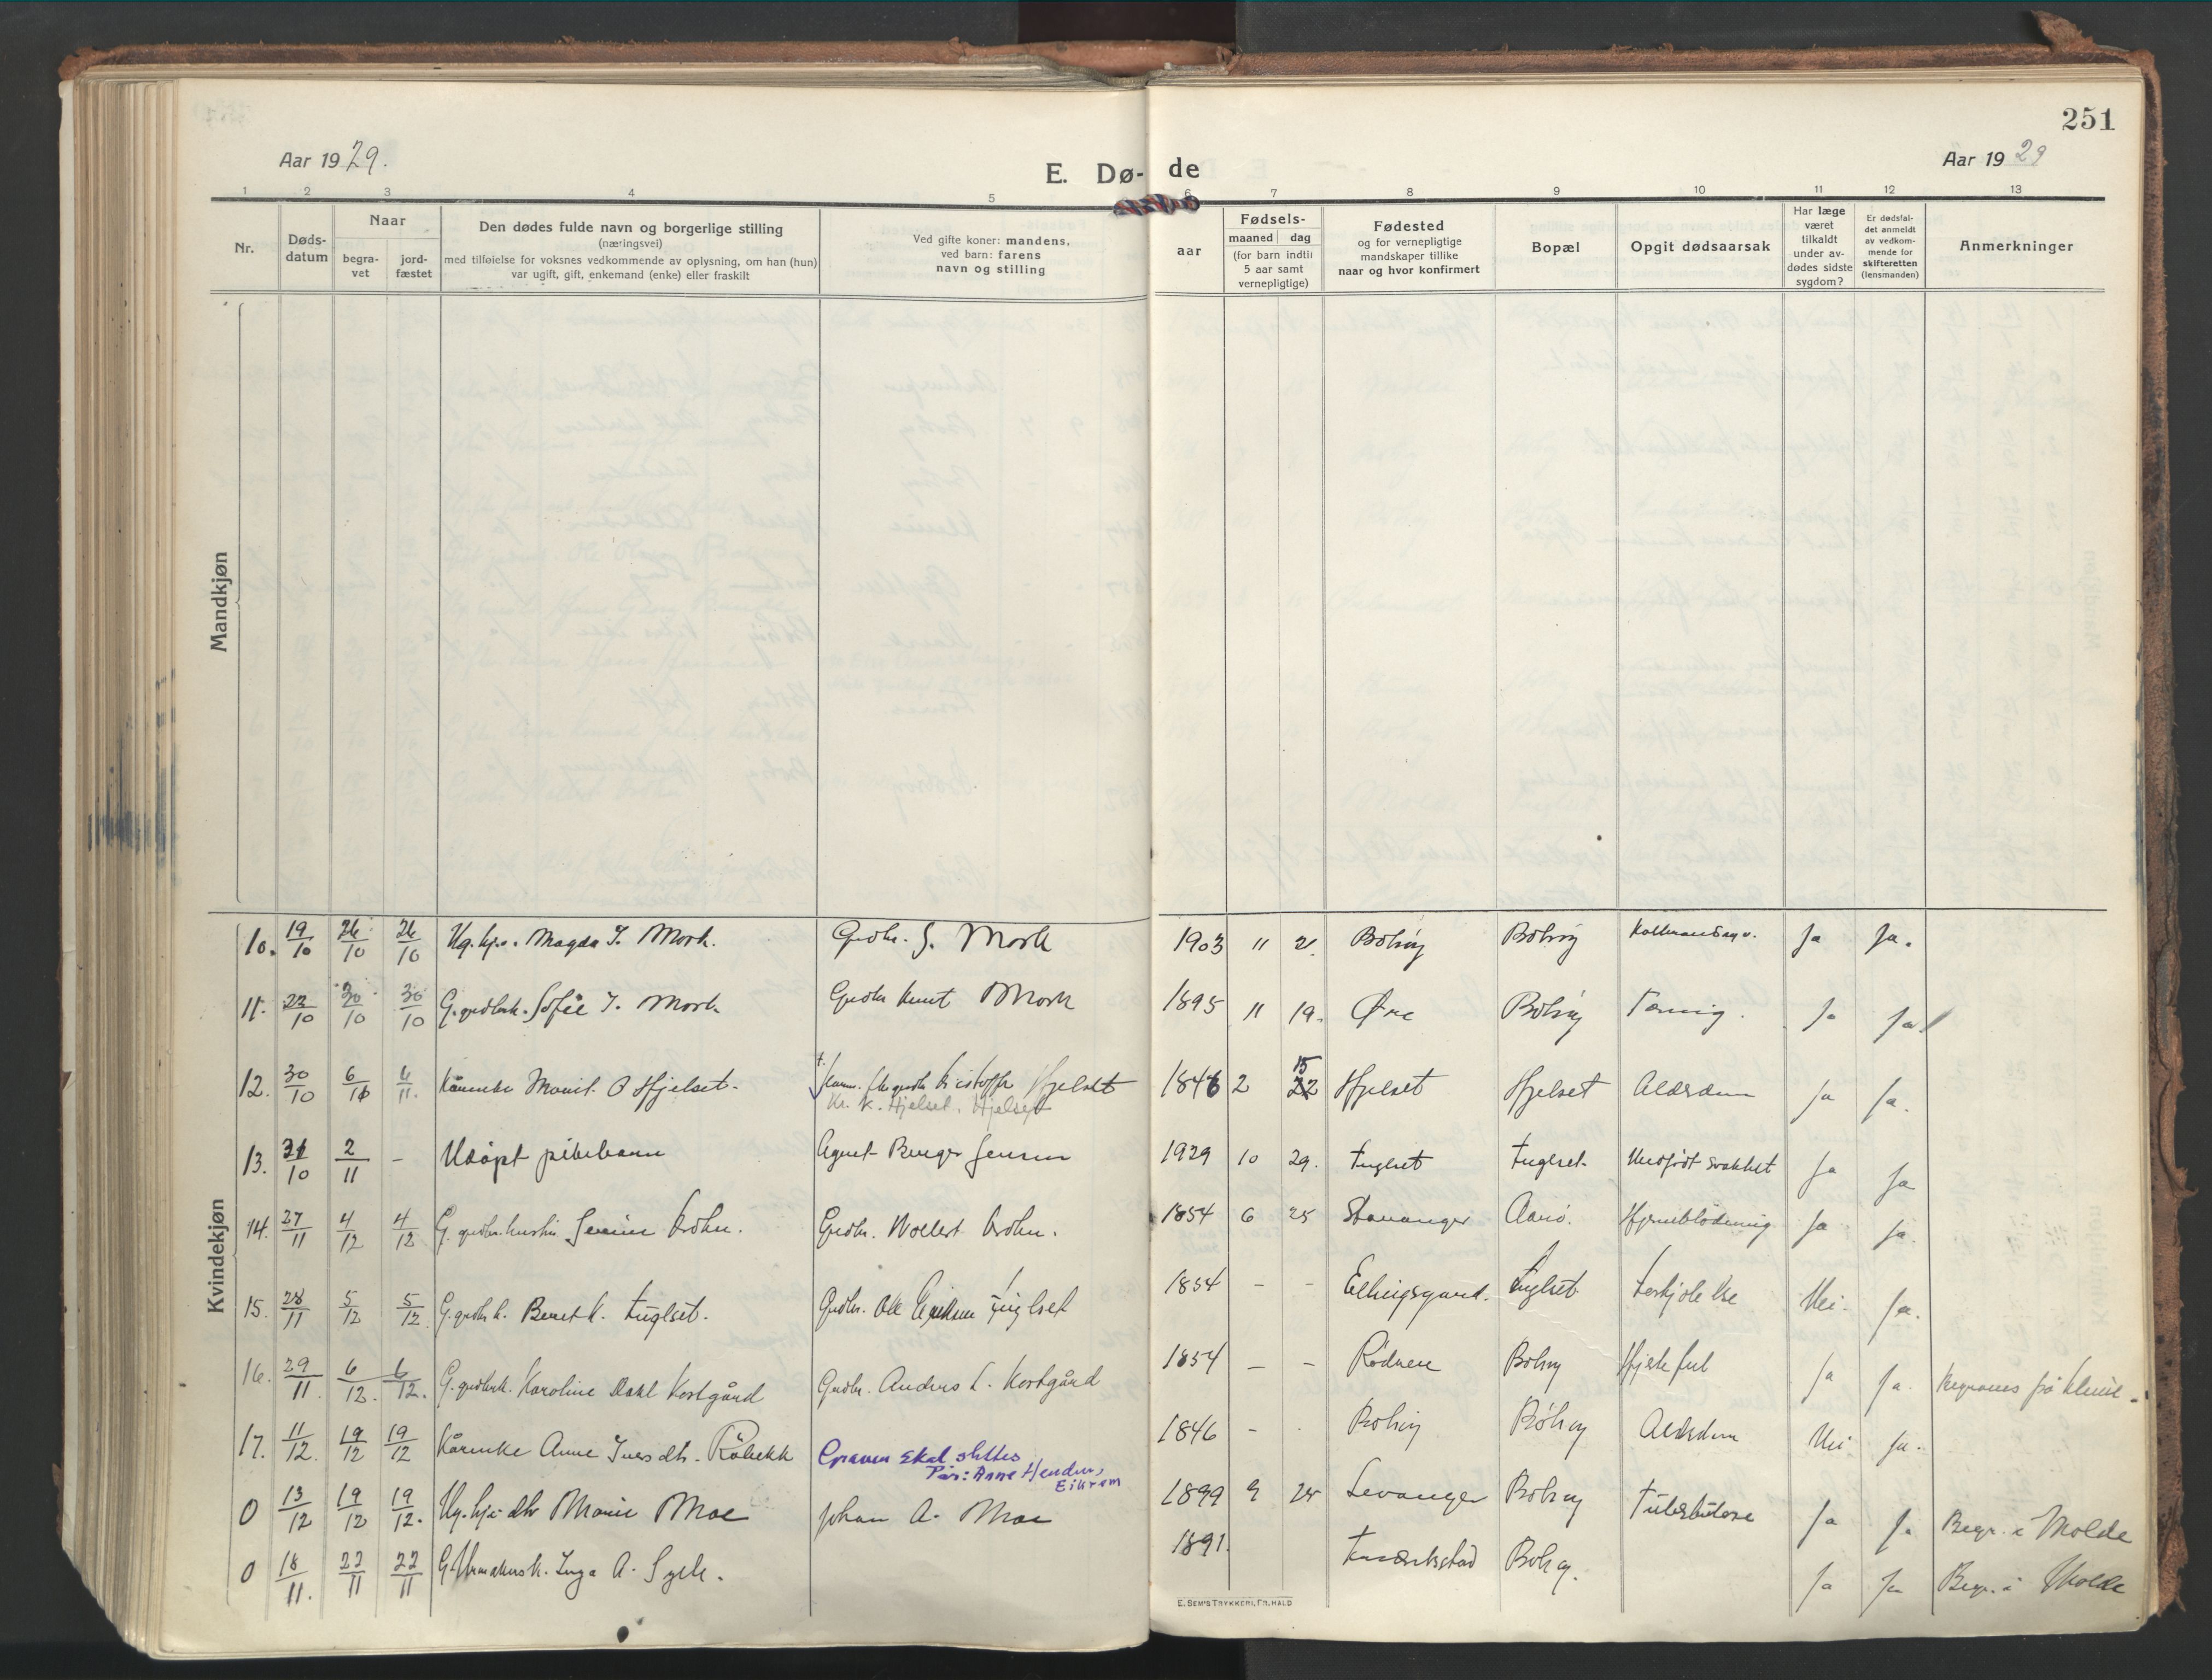 251
Aar 1929.
E. Dø- de
Aar 1929
1 2 3 4 5 6 7 8 9 10 11 12 13
Nr.
Døds-
datum
Naar
begra-
vet
jord-
fæstet
Den dødes fulde navn og borgerlige stilling
(næringsvei)
med tilføielse for voksnes vedkommende av oplysning, om han (hun)
var ugift, gift, enkemand (enke) eller fraskilt
Ved gifte koner: mandens,
ved barn: farens
navn og stilling
aar
Fødsels-
maaned dag
(for barn indtil
5 aar samt
vernepligtige)
Fødested
og for vernepligtige
mandskaper tillike
naar og hvor konfirmert
Bopæl
Opgit dødsaarsak
Har læge
været
tilkaldt
under av-
dødes sidste
sygdom?
Er dødsfal-
det anmeldt
av vedkom-
mende for
skifteretten
(lensmanden)
Anmerkninger
Mandkjøn
Kvindekjøn
10. 19/10 26/10 26/10 Ug. hj. Magda J. Mork. Grdbr. J. Mork 1903 11 21. Bolsøy Bolsøy Ja Ja.
11. 22/10 30/10 30/10 G. grdbrk. Sofie J. Mork. Grdbr Knut Mork 1895 11 19. Øre Bolsøy Tæring. Ja Ja
12. 30/10 6/11 6/11. Kårenke Marit O Hjelset. Kristoffer Hjelset 1846 2 15 22 Hjelset Hjelset Alderdom Ja Ja.
Kr. K. Hjelset. Hjelset
13. 31/10 2/11 - Udøpt pikebarn Agnet Berger Jensen 1929 10 29. Fuglset Fuglset. Medfødt svakhet Ja Ja
14. 27/11 4/12 4/12 G. grdbr. hustru Severine Krohn. Grdbr. Wollert Krohn. 1854 6 25 Stavanger Aarø. Hjerneblödning Ja Ja.
15. 28/11 5/12 5/12. G. grdbr k. Beret K. Fuglset. Grdbr. Ole Eriksen Fuglset 1854 - - Ellingsgaard. Fuglset Forkjölelse Nei. Ja.
16. 29/11. 6/12. 6/12. G. grdbrk. Karoline Dahl Kortgård Grdbr. Anders L. Kortgård 1854 - - Rødven Bolsøy Hjertefeil Ja Ja. Begraves på Kleive.
17. 11/12. 19/12 19/12 Kårenke Anne Iversdtr. Röbekk 1846 - Bolsøy Bolsøy Alderdom Nei Ja.
Graven skal slettes
Pår: Anne Henden,
Eikrem
0 13/12 19/12 19/12. Ug. hj. dtr Marie Moe Johan A. Moe 1899 9 25 Levanger Bolsøy Tuberkulose Ja Ja Begr. i Molde
0 18/11. 22/11 22/11 G. Urmakerk. Inga A. Sylte. 1891. Bolsøy. Ja Ja Begr. i Molde
E. SEM'S TRYKKERI, FR. HALD